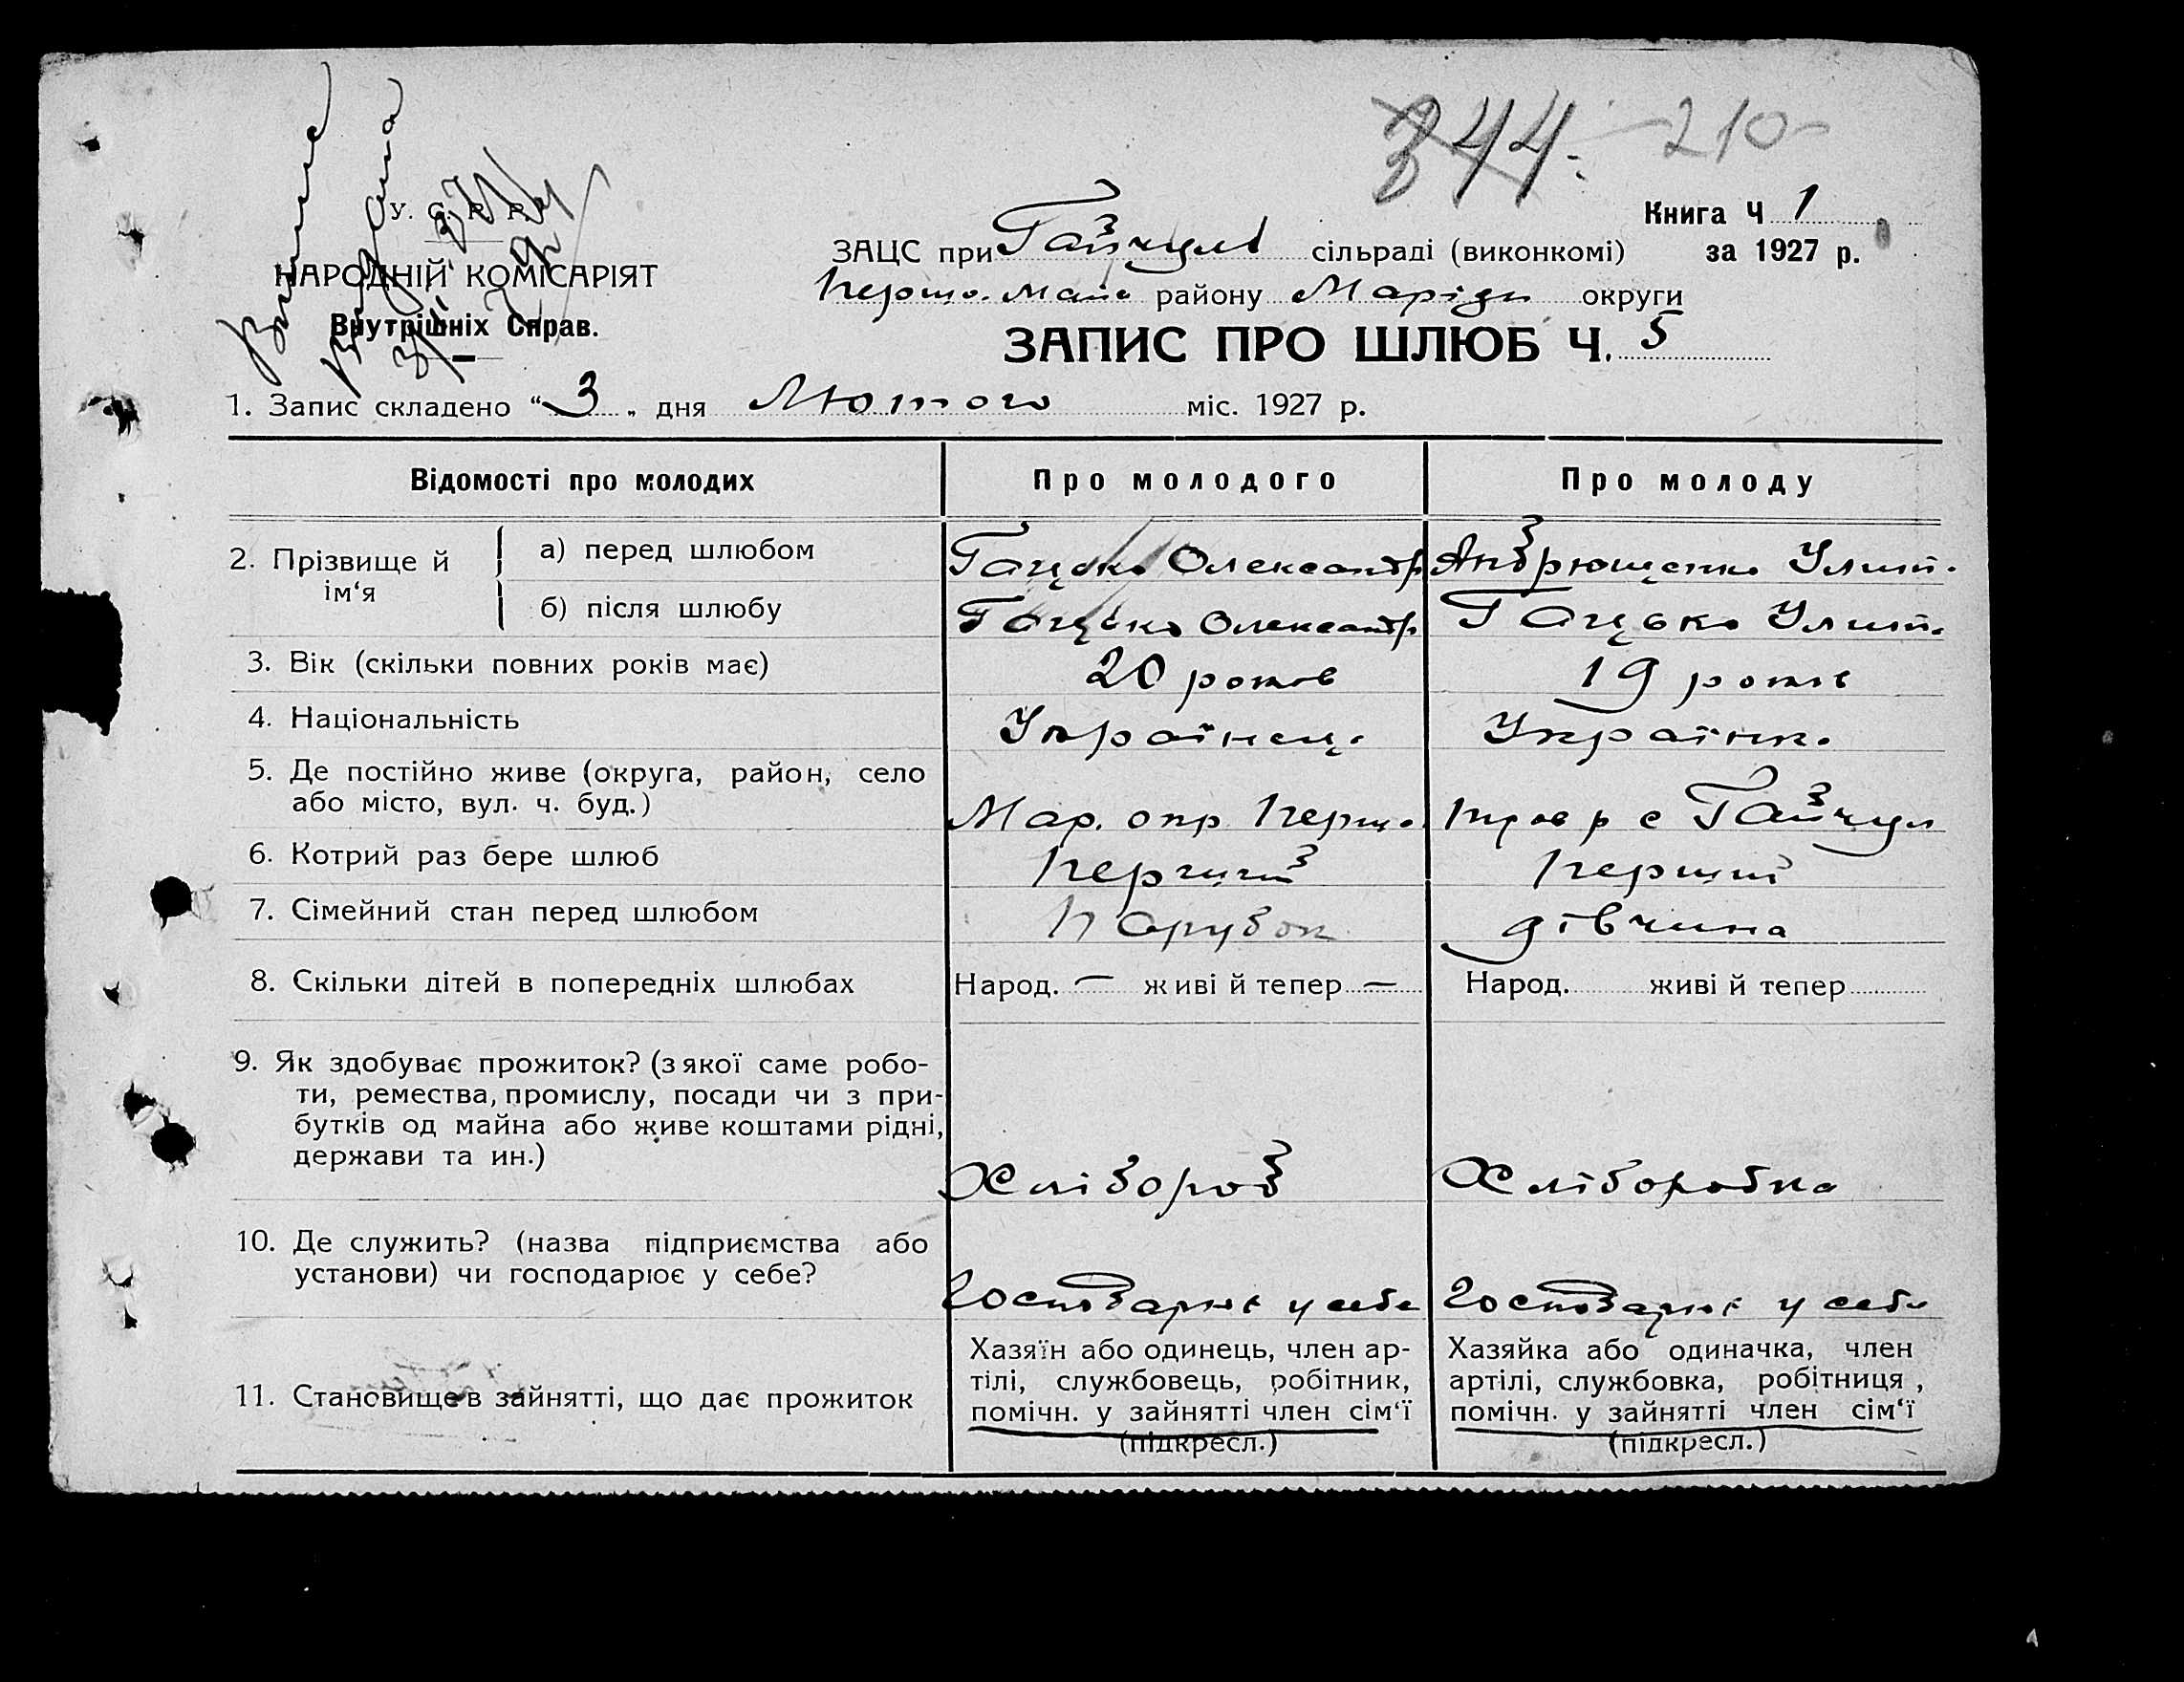 344. 210
Виписка
Видана
У. С. Р. Р.
НАРОДНІЙ КОМІСАРІЯТ
Внутрішніх Справ.
Книга Ч 1
за 1927 р.
ЗАЦС при Гайчулі сільраді (виконкомі)
Першо. Май району Маріуп округи
ЗАПИС ПРО ШЛЮБ Ч. 5
1. Запис складено “3„ дня Лютого міс. 1927 р.
Відомості про молодих Про молодого Про молоду
2. Прізвище й ім‘я
а) перед шлюбом Гацько Олександр Андрющенко Улит.
б) після шлюбу Гацько Олександр Гацько Улит.
3. Вік (скільки повних років має) 20 років 19 років
4. Національність Українец. Українк.
5. Де постійно живе (округа, район, село
або місто, вул. ч. буд.) Мар. окр Перш. р с Гайчул
6. Котрий раз бере шлюб Перший Перший
7. Сімейний стан перед шлюбом Парубок дівчина
8. Скільки дітей в попередніх шлюбах Народ. — живі й тепер — Народ. живі й тепер
9. Як здобуває прожиток? (з якої саме робо-
ти, ремества, промислу, посади чи з при-
бутків од майна або живе коштами рідні,
держави та ин.) Хлібороб Хліборобка
10. Де служить? (назва підприємства або
установи) чи господарює у себе? Господарює у себе Господарює у себе
11. Становище в зайнятті, що дає прожиток
Хазяїн або одинець, член ар-
тілі, службовець, робітник,
помічн. у зайнятті член сім‘ї
(підкресл.)
Хазяйка або одиначка, член
артілі, службовка, робітниця,
помічн. у зайнятті член сім‘ї
(підкресл.)